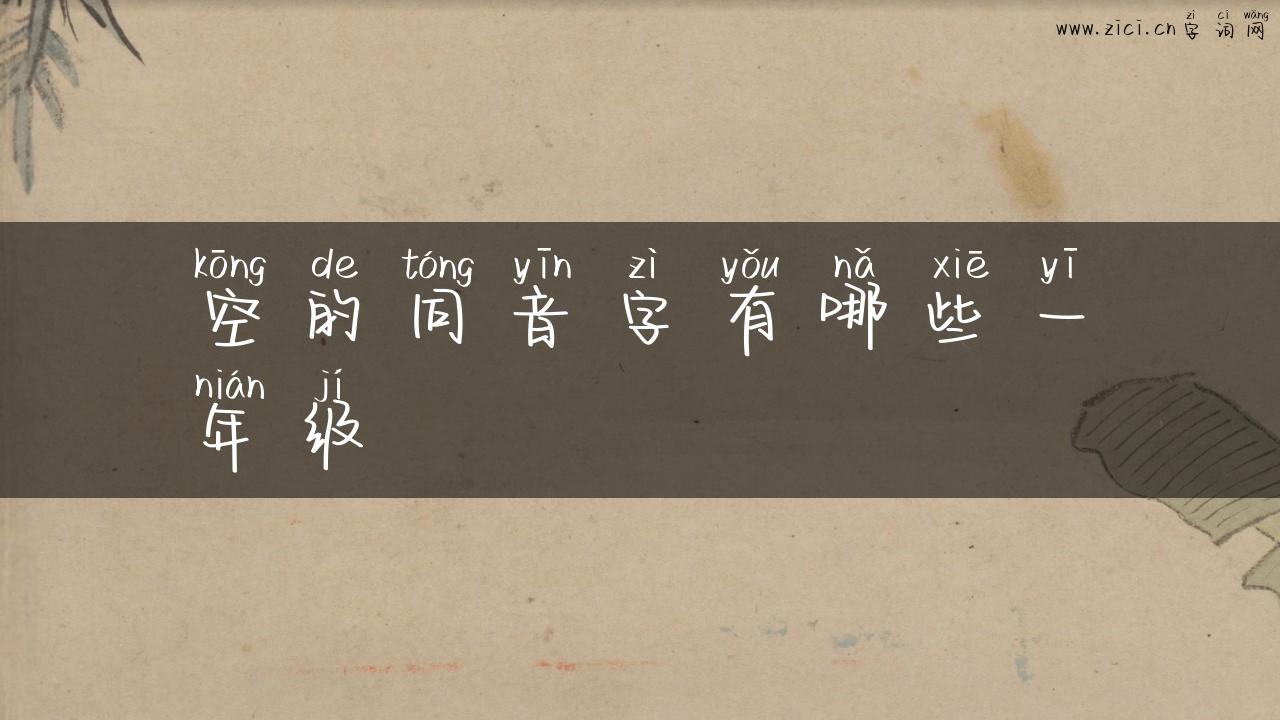 zì cí wǎng
www.zici.cn字词网
kōng de tóng yīn zì yǒu nǎ xiē yī
空的同音字有哪些一
nián jí
年级